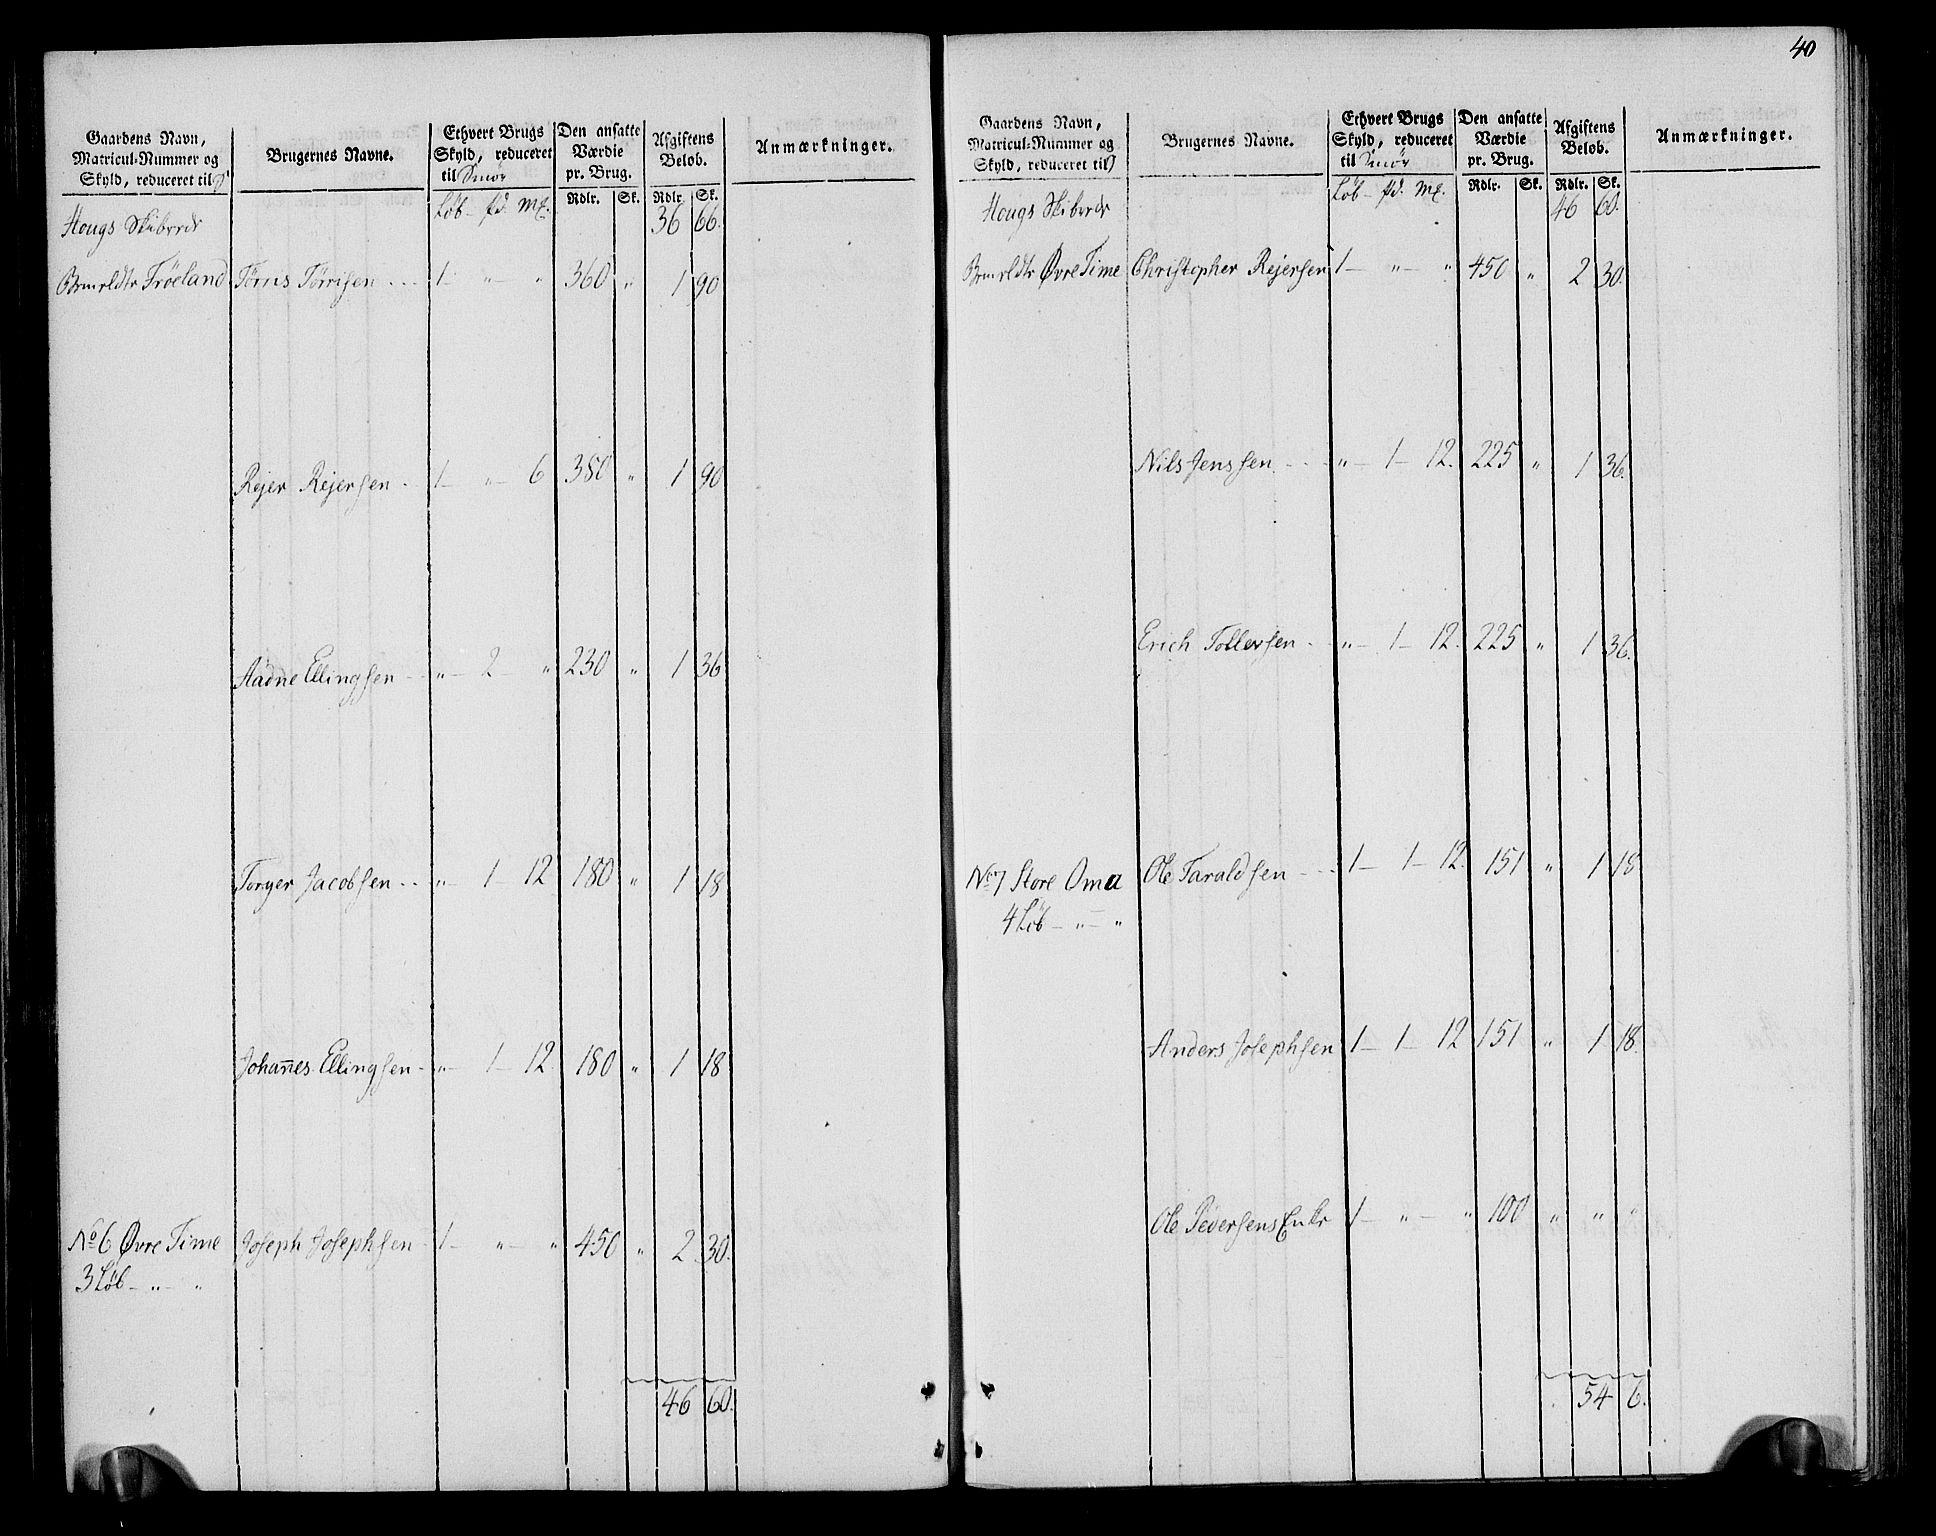 40
Gaardens Navn,
Matricul-Nummer og
Skyld, reduceret til
Brugernes Navne.
Ethvert Brugs
Skyld, reduceret
til Smør
Den ansatte
Værdie
pr. Brug.
Afgiftens
Beløb.
Anmærkninger.
Løb - pd. Mk. Rdlr. Sk. Rdlr. Sk.
Hougs Skibrede 36 66.
Frøeland Tørris Tørrisen 1 " " 360 " 1 90
Rejer Rejersen 1 - " - 6 350 " 1 90
Aadne Ellingsen " - 2 - " 230 " 1 36
Torger Jacobsen " - 1 - 12 180 " 1 18
Johannes Ellingsen " - 1 - 12 180 " 1 18
No 6 Øvre Time Joseph Josephsen 1 - " - " 450 " 2 30.
3 Løb - " - "
46 60.
Gaardens Navn,
Matricul-Nummer og
Skyld, reduceret til
Brugernes Navne.
Ethvert Brugs
Skyld, reduceret
til Smør
Den ansatte
Værdie
pr. Brug.
Afgiftens
Beløb.
Anmærkninger.
Løb - pd. Mk. Rdlr. Sk. Rdlr. Sk.
Hougs Skibrede 46 60.
Øvre Time Christopher Rejersen 1 - " - " 450 " 2 30.
Nils Jenssen " - 1 - 12. 225 " 1 36.
Erich Tollevsen " - 1 - 12. 225 " 1 36.
No 7 Store Oma Ole Taraldsen 1 - 1 - 12. 151 " 1 18
4 Løb - " - "
Anders Josephsen 1 - 1 - 12 151 " 1 18.
Ole Pedersens Enke 1 - " - " 100 " " "
54 6.